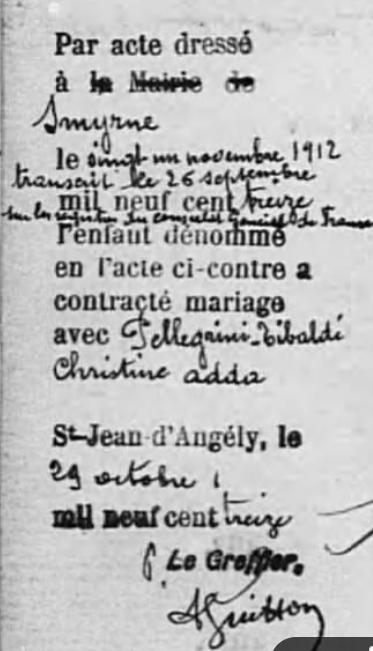 Par acte dressé
à la Mairie de
Smyrne
le vingt un novembre 1912
transcrit le 26 septembre
mil neuf cent treize
sur les registres du consulat Général de France
l'enfant dénommé
en l'acte ci-contre a
contracté mariage
avec Pellegrini-Tibaldi
Christine adda
St-Jean-d'Angély, le
29 octobre
mil neuf cent treize
p. Le Greffier,
AGuitton